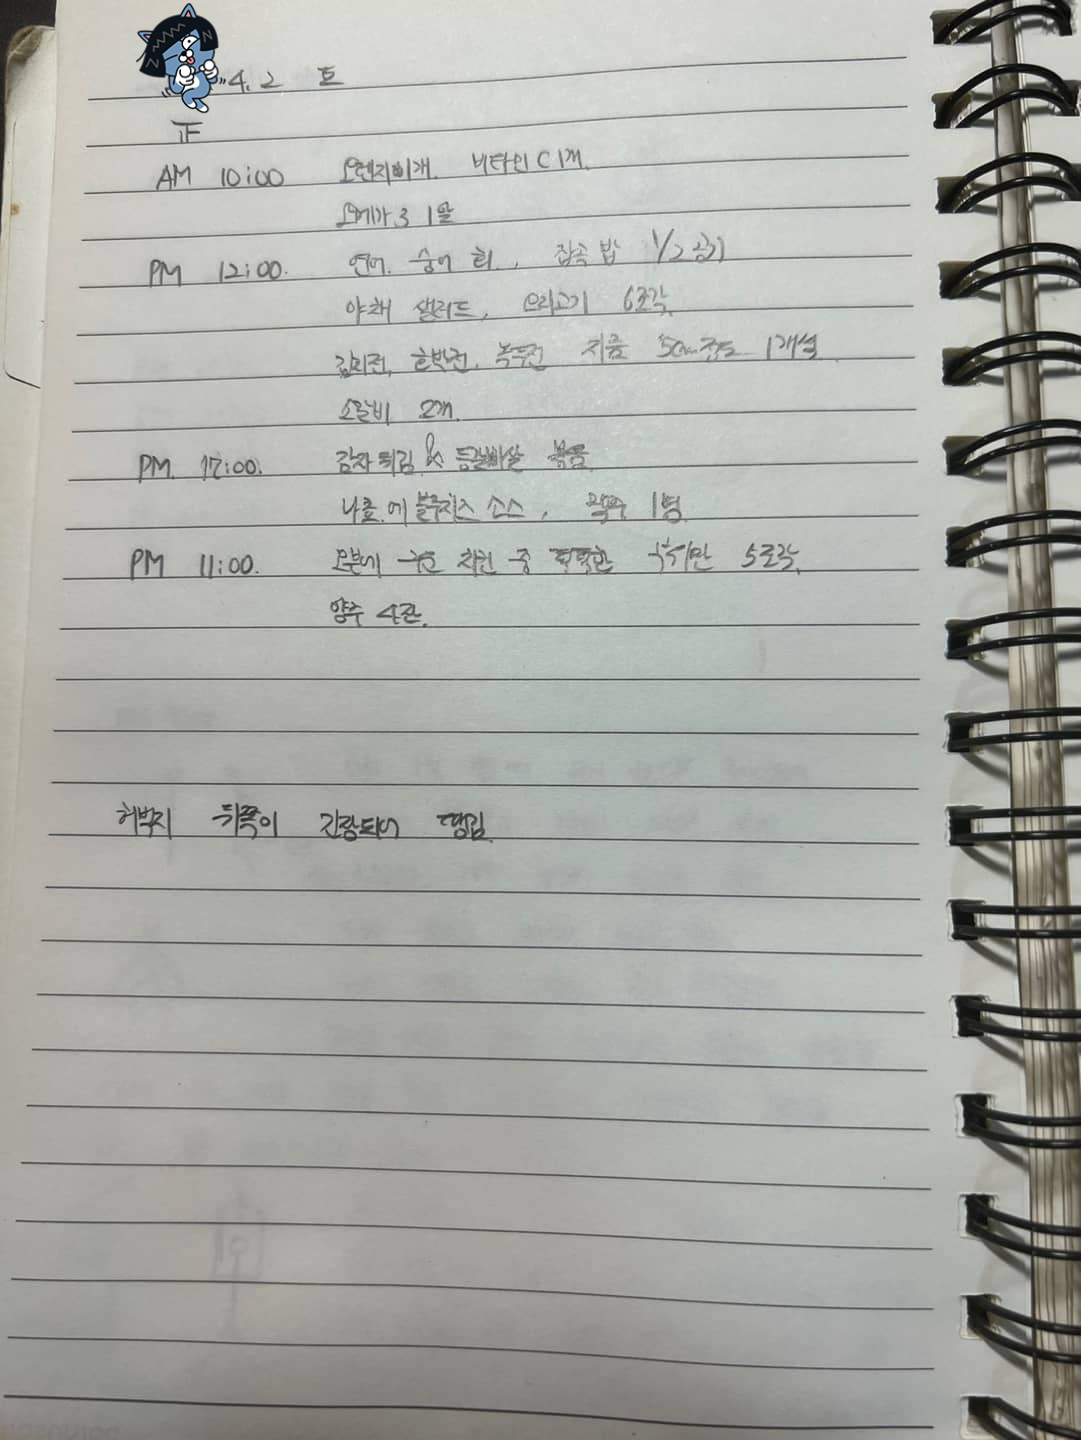 4.2 토
正
AM 10:00 오렌지 1개. 비타민 C 1개.
오메가 3 1알
PM 12:00. 연어. 숭어 회, 잡곡밥 1/2 공기
야채 샐러드, 오리고기 6조각.
김치전, 호박전, 녹두전 지름 5cm 정도 1개씩
소갈비 2개.
PM. 17:00. 감자튀김 & 등갈빠살 볶음.
나쵸에 블루치즈 소스, 맥주 1병
PM 11:00. 오븐에 구운 치킨 중 퍽퍽한 부위만 5조각.
양주 4잔.
허벅지 뒤쪽이 긴장되어 땡김.